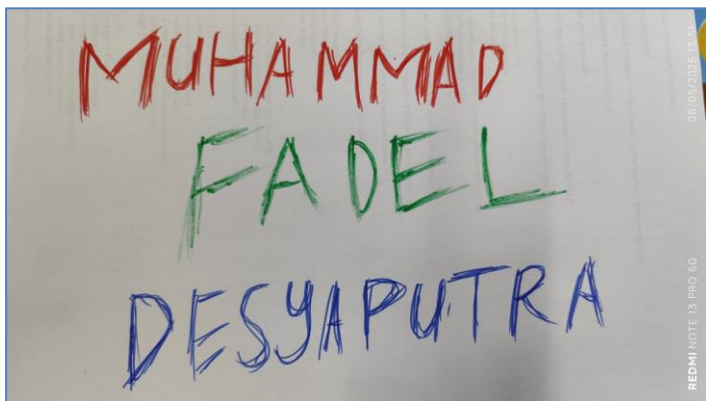 MUHAMMAD
FADEL
DESYAPUTRA
08/05/2025 13:51
REDMI NOTE 13 PRO 5G